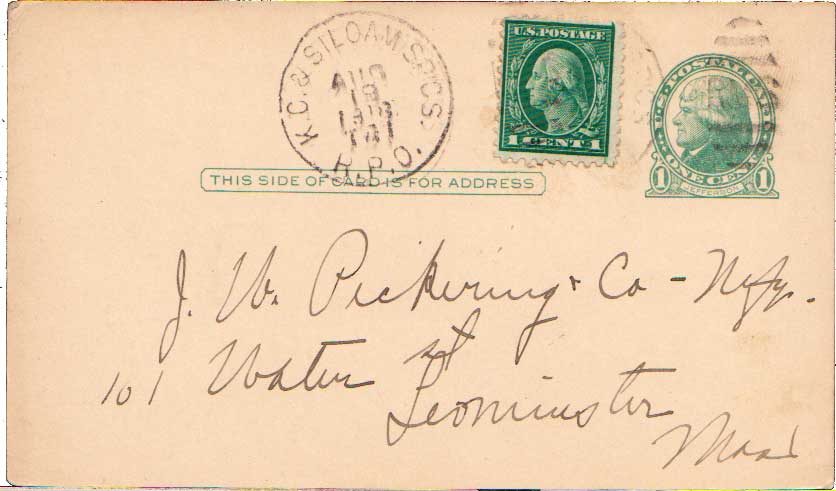 K.C. & SILOAM SPGS.
AUG
19
191
141
R.P.O.
U.S. POSTAGE
1 CENT 1
U.S. POSTAL CARD
ONE CENT
1 JEFFERSON 1
THIS SIDE OF CARD IS FOR ADDRESS
J. W. Pickering & Co - Mfg.
101 Water st
Leominster
Mass